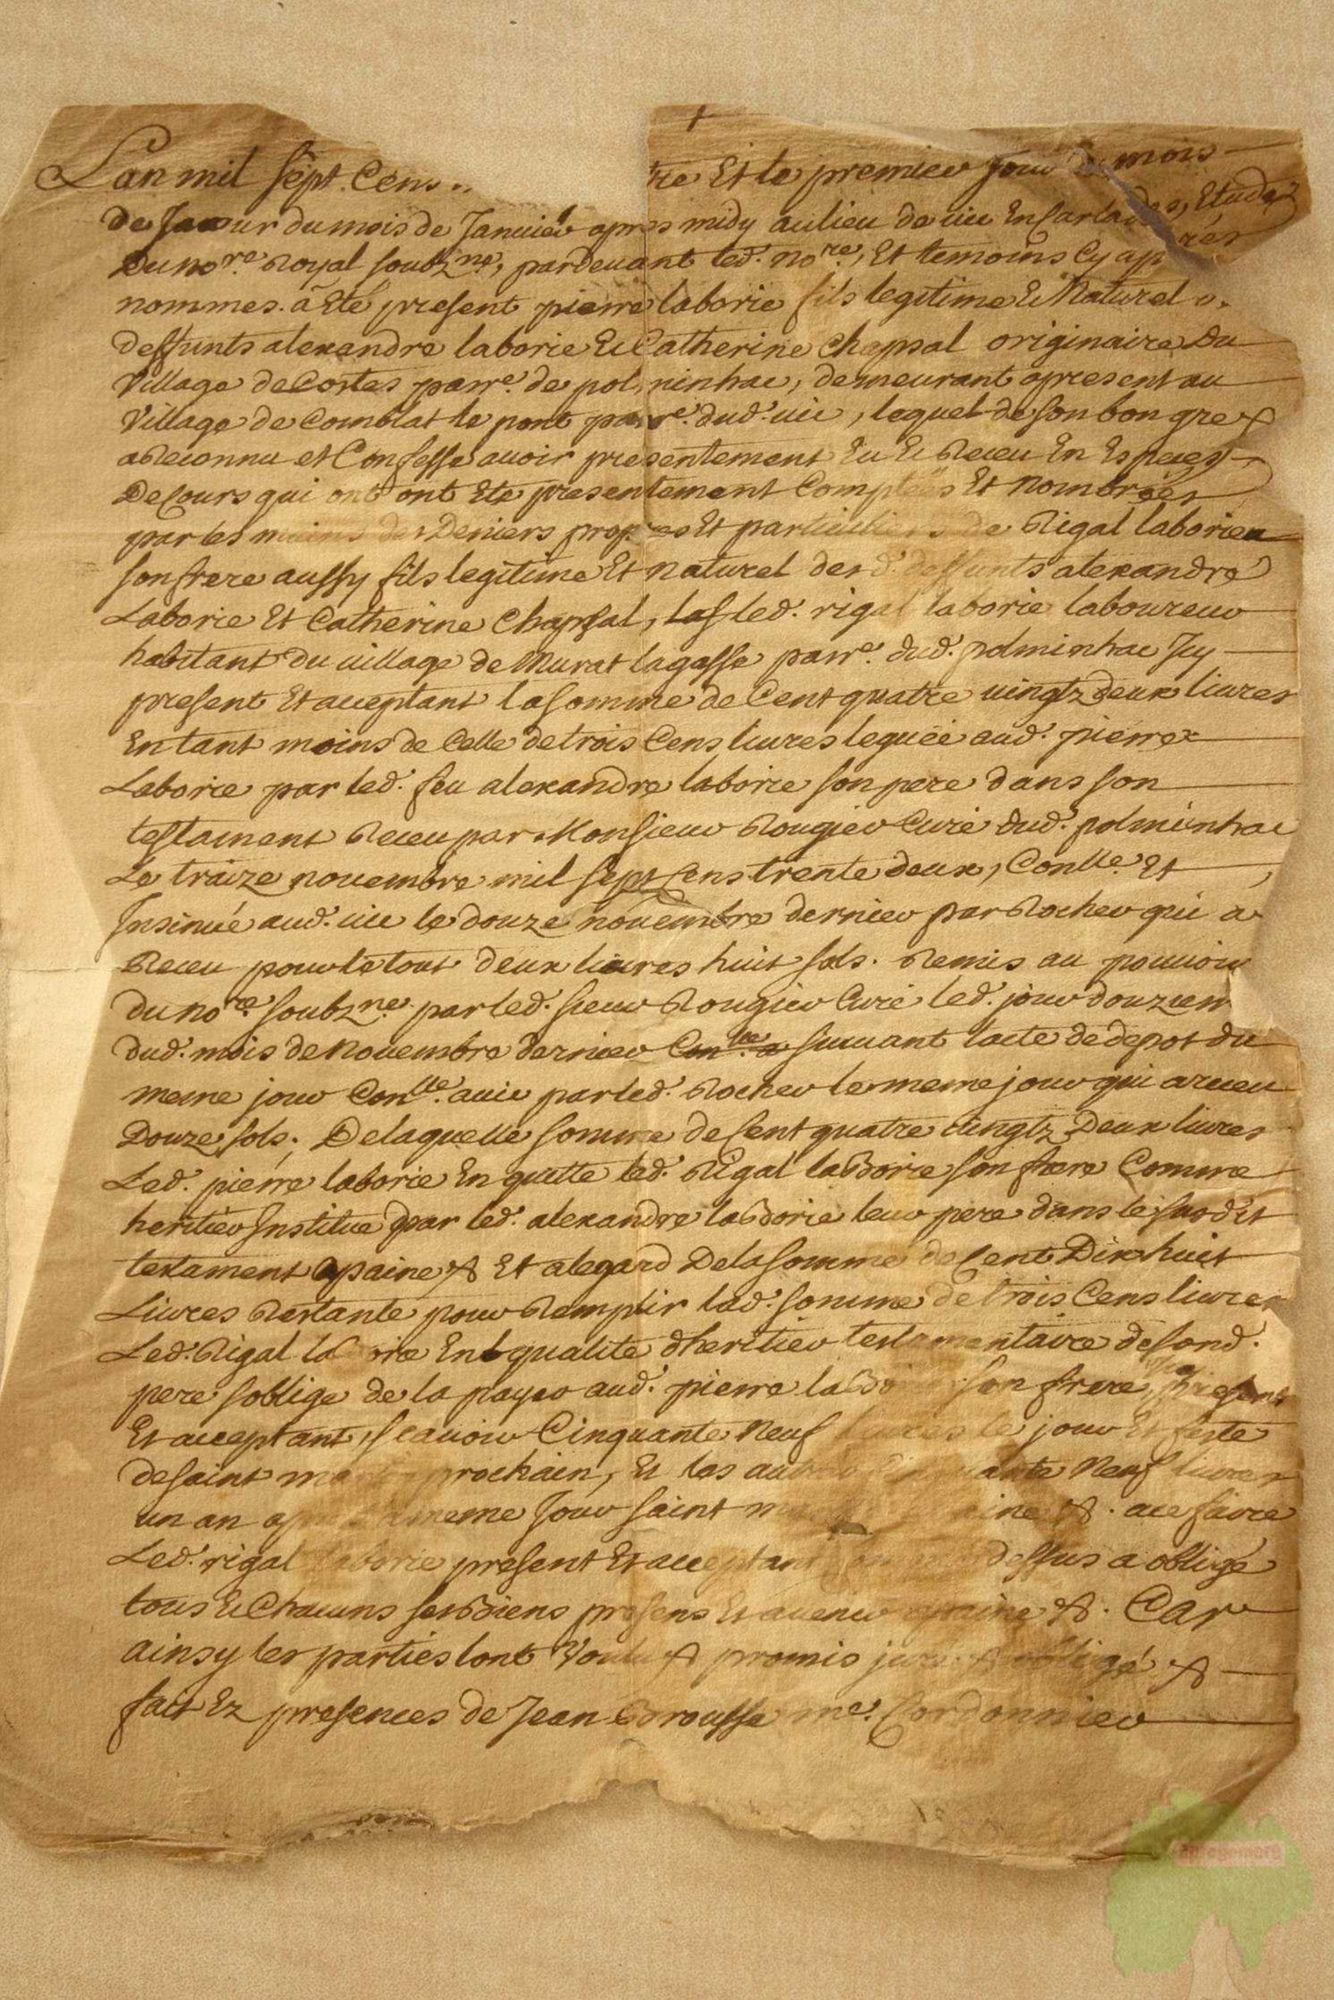 Lan mil Sept Cens
tre Et le premier Jour du mois
de Janvier du mois de Janvier apres midy au lieu de vic En Carlades, Etude
Du nore. Royal soubzne, pardevant led. nore, Et temoins Cy ap rés
nommes. à Eté present pierre laborie fils legitime Et Naturel
deffunts alexandre laborie Et Catherine Chapsal originaire Du
Village de Costes parre. de pol ninhac, demeurant apresent au
Village de Comblat le pont parre. dud. vic, lequel de son bon gre &
a Reconnu et Confessé avoir presentement Eu Et Receu En Especes
De Cours qui ont ont Eté presentement Comptées Et Nombrées
par les mains des Deniers propres Et particuliers de Rigal laborie
son frere aussy fils legitime Et naturel desd. deffunts alexandre
Laborie Et Catherine Chapsal, led. rigal laborie laboureur
habitant du village de Murat lagasse parre. dud. polminhac Icy
present Et acceptant la somme de Cent quatre vingtz deux livres
En tant moins de Celle de trois Cens livres leguée aud. pierre
Laborie par led. feu alexandre laborie son pere dans son
testament Receu par Monsieur Rougier Curé dud. polminhac
Le traize novembre mil sept Cens trente deux, Conlle. Et
Insinué aud. vic le douze novembre dernier par Rocher qui a
Receu pour le tout deux livres huit sols. Remis au pouvoir
du nore soubzne. par led. sieur Rougier Curé led. jour douziem
dud. mois de Novembre dernier Conlle a suivant lacte de depot du
meme jour Conlle. a vic par led. Rocher le meme jour qui a receu
Douze sols; De laquelle somme de Cent quatre vingtz Deux livres
Led. pierre laborie En quitte led. Rigal laborie son frere Comme
heritier Institué par led. alexandre laborie leur pere dans le susdit
testament apaine & Et a legard De la somme de Cent Dix huit
Livres Restante pour Remplir lad. somme de trois Cens livres
Led. Rigal laborie En qualité dheritier testamentaire de sond.
pere soblige de la payer aud. pierre laborie son frere, present
Et acceptant, scavoir Cinquante Neuf livres le jour Et feste
de saint martin prochain, Et les autres Cinquante Neuf livres
un an apres meme Jour saint martin apaine &. a ce faire
Led. rigal laborie present Et acceptant dessus a obligé
tous Et Chacuns ses Biens presens Et avenir apaine &. Car
ainsy les parties lont Voulu & promis juré & obligé &
fait Ez presences de Jean Brousse me. Cordonnier